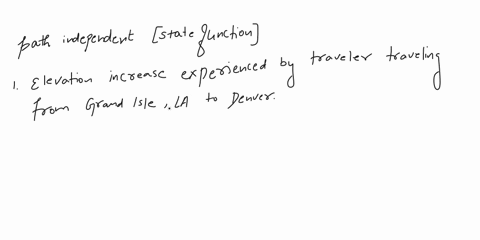 path independent [state function]
1. Elevation increase experienced by traveler traveling
from Grand Isle, LA to Denver.